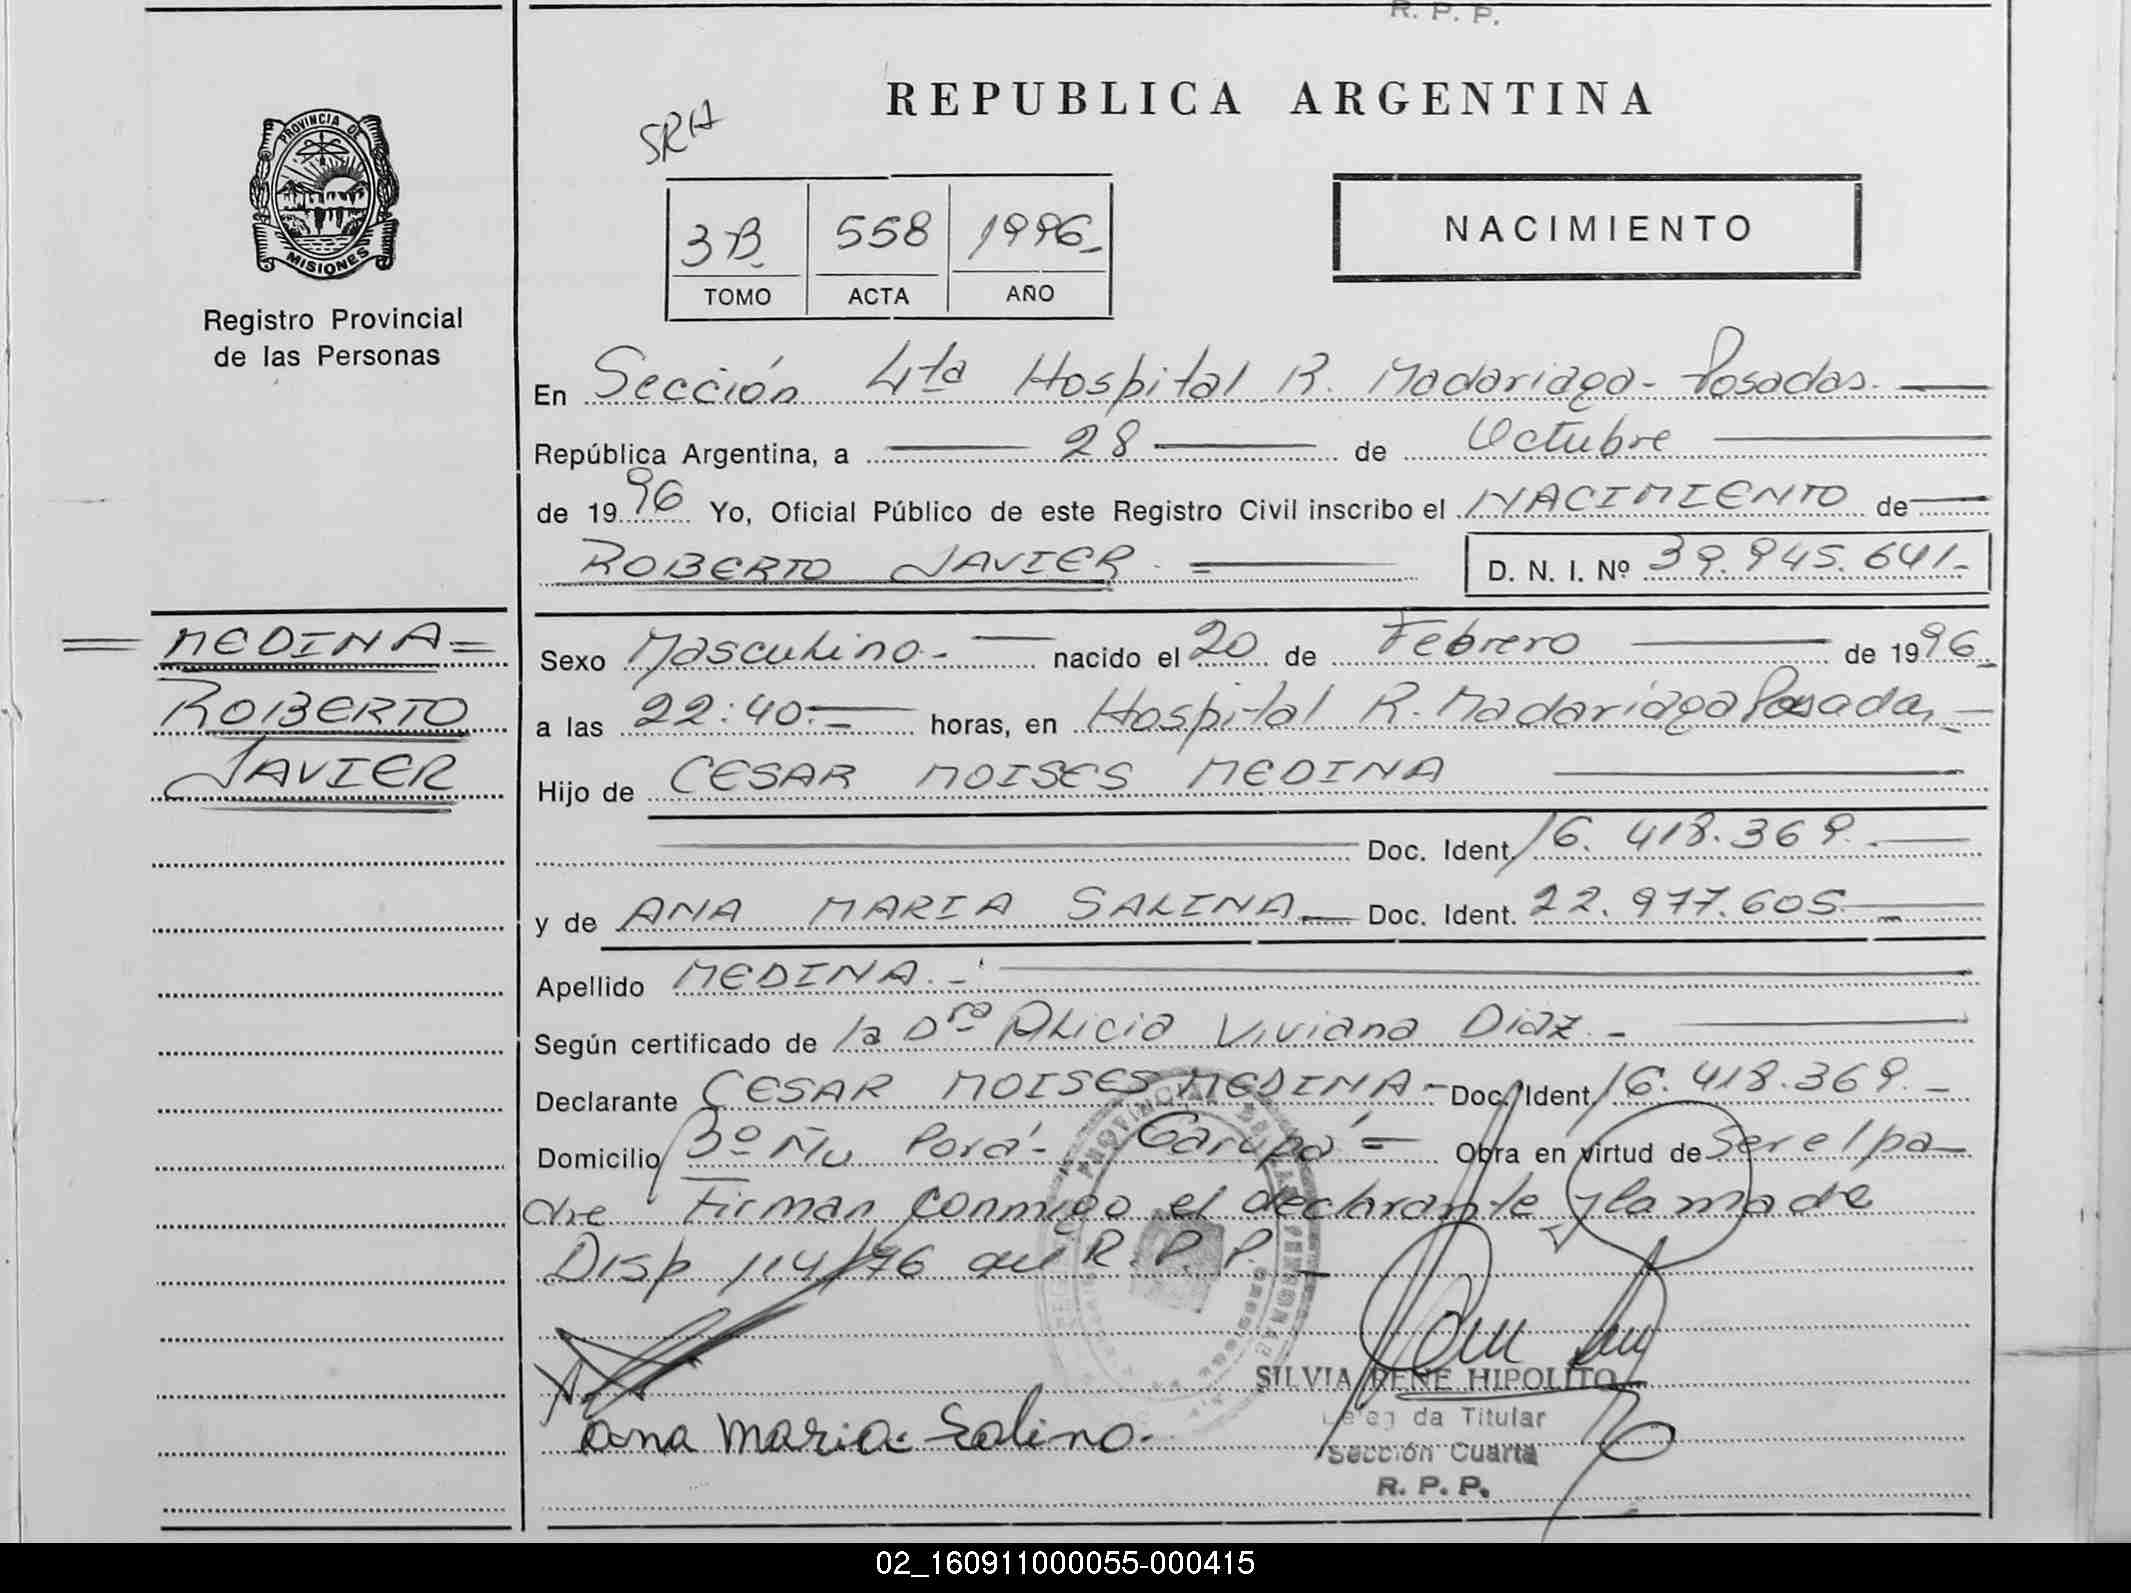 R. P. P.
PROVINCIA DE
MISIONES
Registro Provincial
de las Personas
MEDINA =
ROBERTO
JAVIER
REPUBLICA ARGENTINA
SRH
3B. 558 1996_
TOMO ACTA AÑO
NACIMIENTO
En Sección 4ta Hospital R. Madariaga - Posadas.
República Argentina, a 28 de Octubre
de 1996 Yo, Oficial Público de este Registro Civil inscribo el NACIMIENTO de
ROBERTO JAVIER D. N. I. Nº 39.945.641.-
Sexo Masculino.- nacido el 20 de Febrero de 1996_
a las 22:40.- horas, en Hospital R. Madariaga Posadas.-
Hijo de CESAR MOISES MEDINA
Doc. Ident. 16.418.369.
y de ANA MARIA SALINA - Doc. Ident. 22.977.605
Apellido MEDINA.-
Según certificado de la Dra Alicia Viviana Diaz.-
Declarante CESAR MOISES MEDINA - Doc. Ident. 16.418.369.-
Domicilio Bº Ñu Porá - Garupá = Obra en virtud de Ser el pa-
dre Firman conmigo el declarante y la madre
Disp 114/76 del R.P.P.
SILVIA RENE HIPOLITO
Titular
Sección Cuarta
R. P. P.
Ana Maria Salino.
02_160911000055-000415